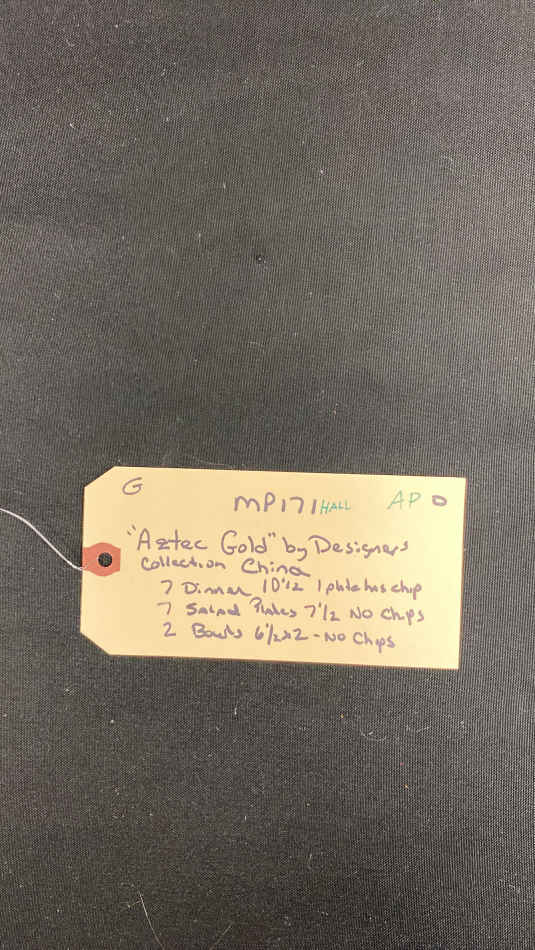 G
MP171 HALL AP 0
"Aztec Gold" by Designers
Collection China
7 Dinner 10"1/2 1 plate has chip
7 Salad Plates 7"1/2 No Chips
2 Bowls 6"1/2x2 - No Chips